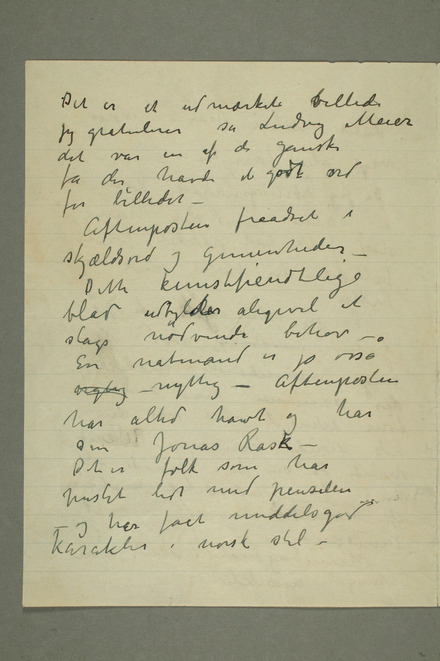 Det er et udmærkete billede
jeg gratulerer sa Ludvig Meier
det var en af de ganske
få der havde et godt ord
for billedet –
Aftenposten fraadset i
skjældsord og gemenheder –
Dette kunstfiendtlige
blad udfylder aligevel et
slags nødvende behov –
En natmand er jo også
vigtig – nyttig – Aftenposten
har altid havt og har
sin Jonas Rask –
Det er folk som har
pusslet lidt med penselen
– og har fået middelsgod
karakter i norsk stil –